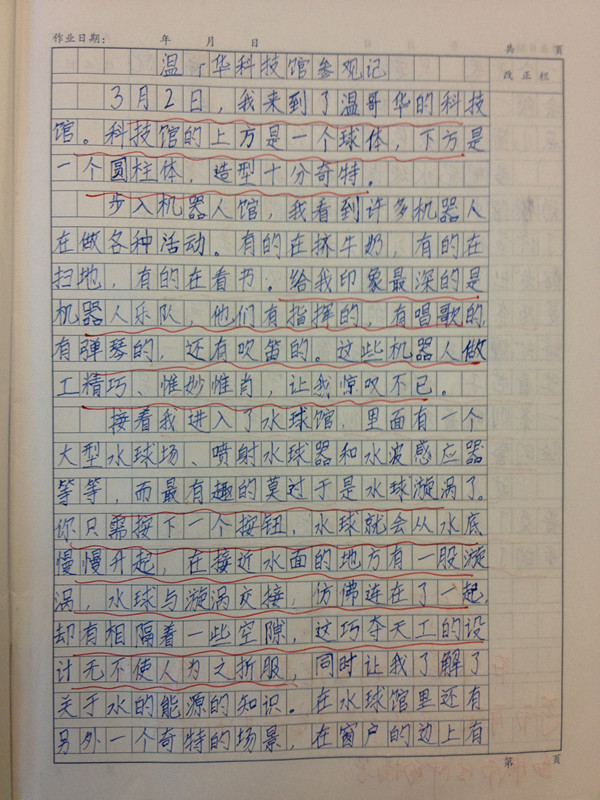 作业日期： 年 月 日 共 页
温哥华科技馆参观记
改正栏
3月2日，我来到了温哥华的科技
馆。科技馆的上方是一个球体，下方是
一个圆柱体，造型十分奇特。
步入机器人馆，我看到许多机器人
在做各种活动。有的在挤牛奶，有的在
扫地，有的在看书。给我印象最深的是
机器人乐队，他们有指挥的，有唱歌的，
有弹琴的，还有吹笛的。这些机器人做
工精巧、惟妙惟肖，让我惊叹不已。
接着我进入了水球馆，里面有一个
大型水球场、喷射水球器和水波感应器
等等，而最有趣的莫过于是水球漩涡了。
你只需按下一个按钮，水球就会从水底
慢慢升起，在接近水面的地方有一股漩
涡，水球与漩涡交接，仿佛连在了一起，
却有相隔着一些空隙，这巧夺天工的设
计无不使人为之折服，同时让我了解了
关于水的能源的知识。在水球馆里还有
另外一个奇特的场景，在窗户的边上有
第 页